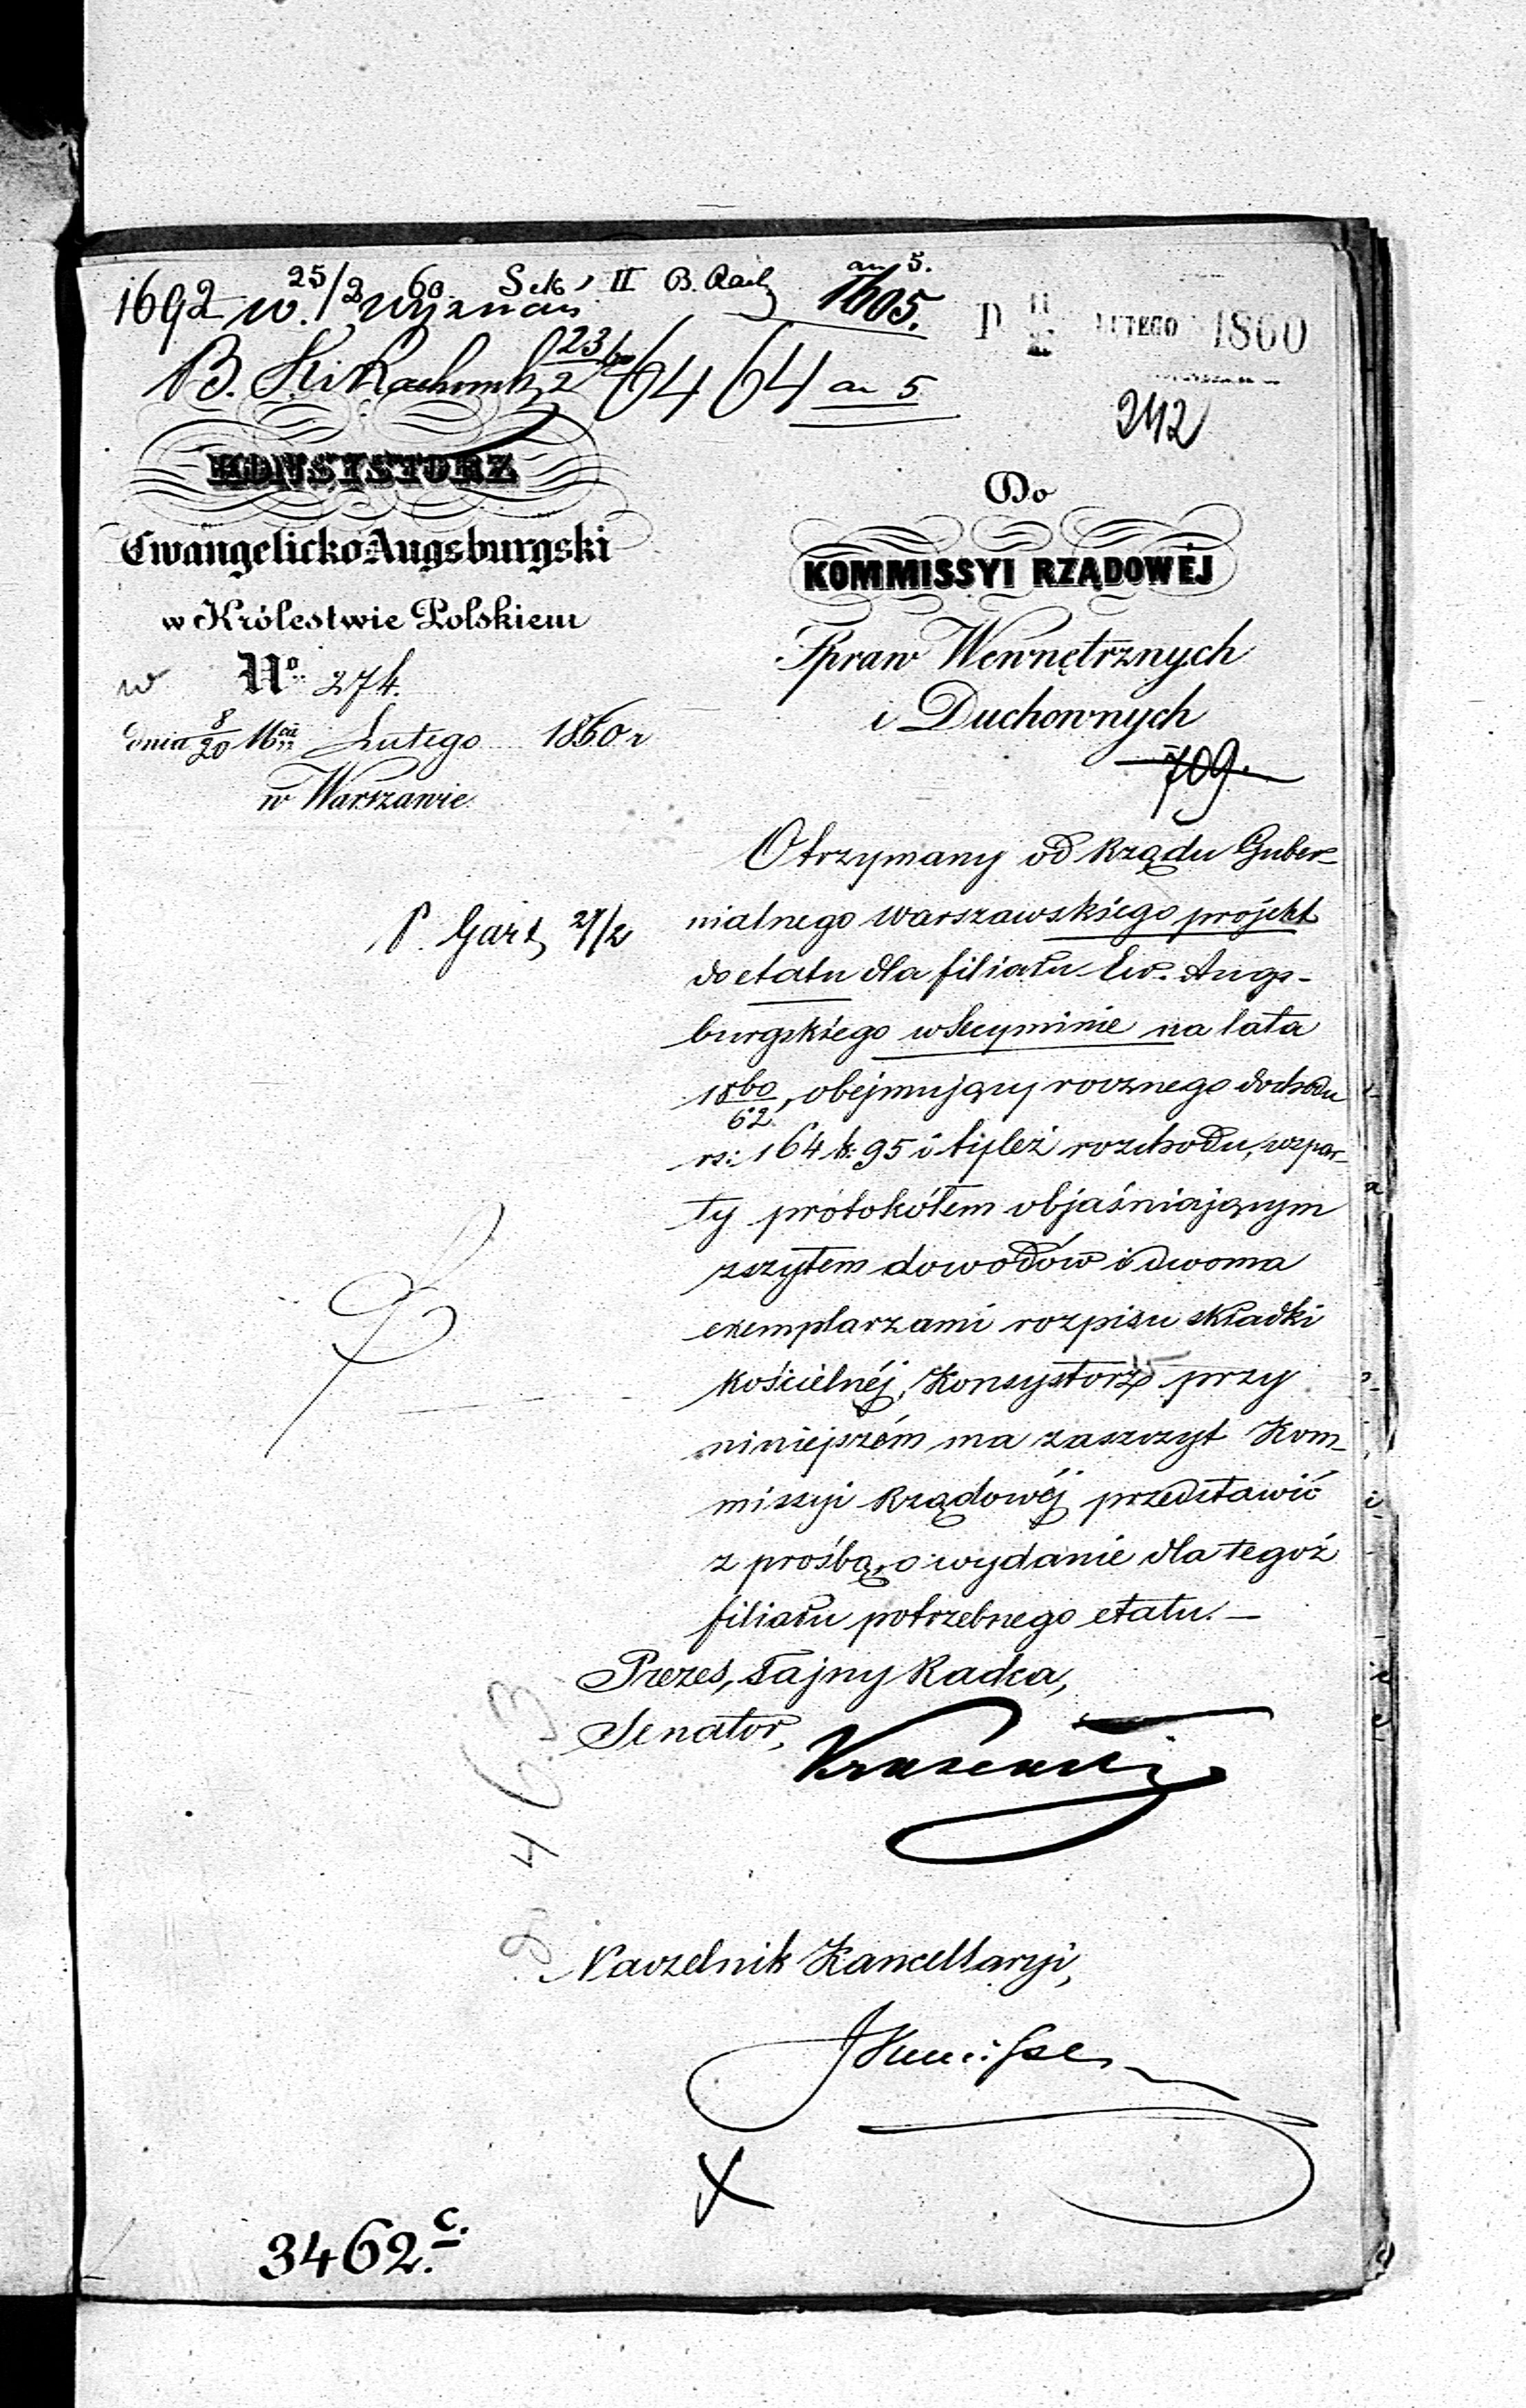 1692 w. 25/2 60 Sek. II B. Rach
Wyznań
an 5.
1605.
LUTEGO 1860
B. 23/2 6464 an 5
242
KONSYSTORZ
Ewangelicko-Augsburgski
w Królestwie Polskiem
w No 274.
dnia 8/20 Mca Lutego 1860 r
w Warszawie
Do
KOMMISSYI RZĄDOWÉJ
Spraw Wewnętrznych
i Duchownych
709.
Otrzymany od Rządu Guber-
nialnego Warszawskiego projekt
do etatu dla filiału Ew. Augs-
burgskiego w Secyminie na lata
1860/62, obejmujący rocznego dochodu
rs: 164 k: 95 i tyleż rozchodu, wspar-
ty protokółem objaśniającym
zszytem dowodów i dwoma
exemplarzami rozpisu składki
kościelnéj, Konsystorz przy
niniejszém ma zaszczyt Kom-
missyi Rządowéj przedstawić
z prośbą o wydanie dla tegoż
filiału potrzebnego etatu. —
P. 27/2
Prezes, Tajny Radca,
Senator,
463
Naczelnik Kancellaryi,
3462.c.